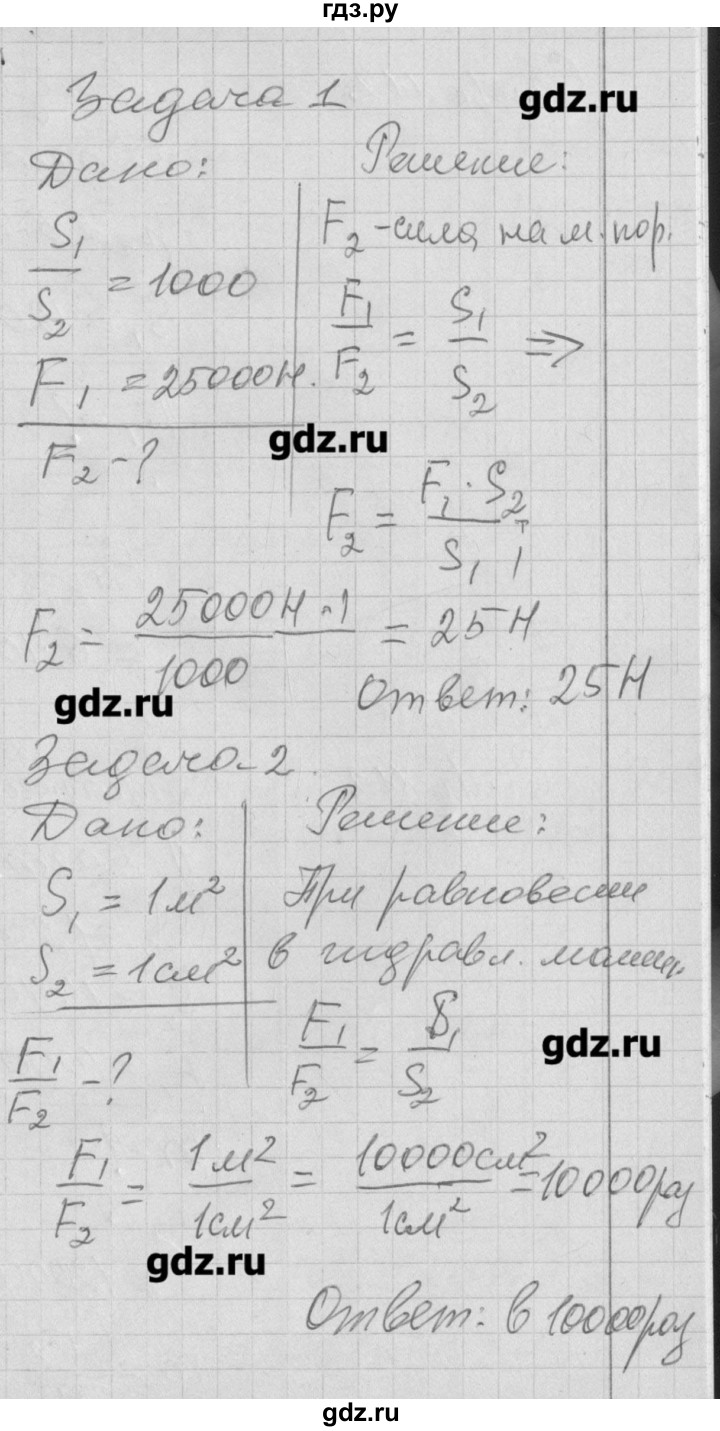 гдз.ру
Задача 1
gdz.ru
Дано:
Решение:
S₁/S₂ = 1000
F₁ = 25000Н.
F₂ - ?
F₂ - сила на м. пор.
F₁/F₂ = S₁/S₂ ⇒
gdz.ru
F₂ = F₁ · S₂ / S₁
F₂ = 25000Н · 1 / 1000 = 25 Н
gdz.ru
Ответ: 25Н
Задача 2
Дано:
Решение:
S₁ = 1м²
S₂ = 1см²
F₁/F₂ - ?
При равновесии
в гидравл. машин.
F₁/F₂ = S₁/S₂
gdz.ru
F₁/F₂ = 1м²/1см² = 10000см²/1см² = 10000раз
gdz.ru
Ответ: в 10000раз
gdz.ru